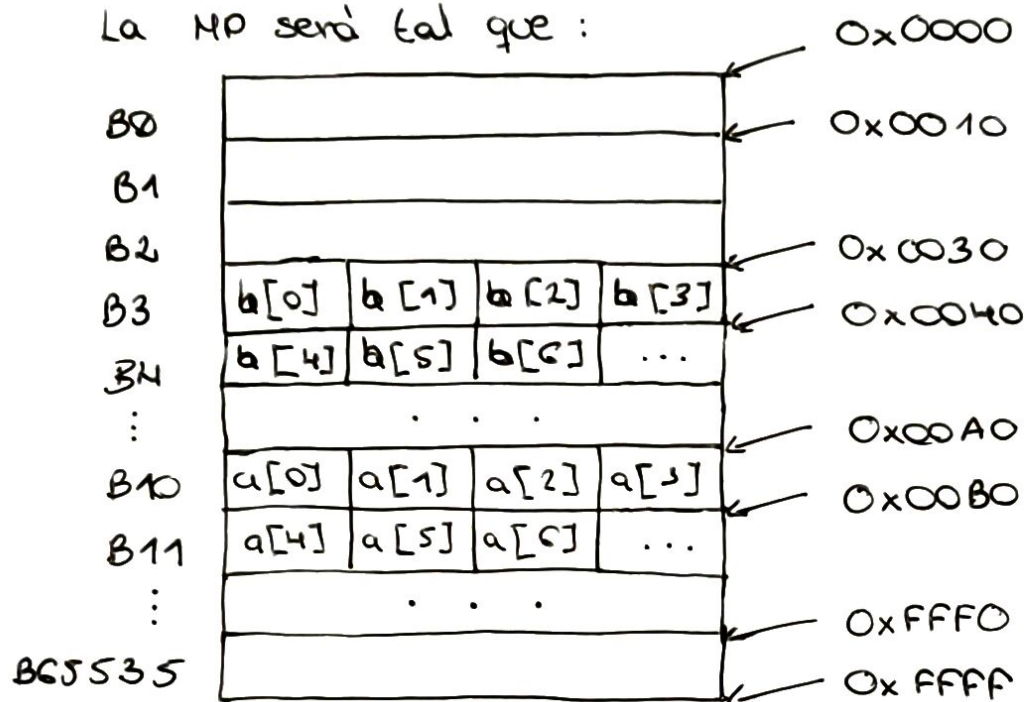 La MP será tal que :
0x0000
B0
0x0010
B1
B2
0x0030
B3 b[0] b[1] b[2] b[3]
0x0040
B4 b[4] b[5] b[6] ...
⋮ . . .
0x00A0
B10 a[0] a[1] a[2] a[3]
0x00B0
B11 a[4] a[5] a[6] ...
⋮ . . .
0xFFF0
B65535
0xFFFF